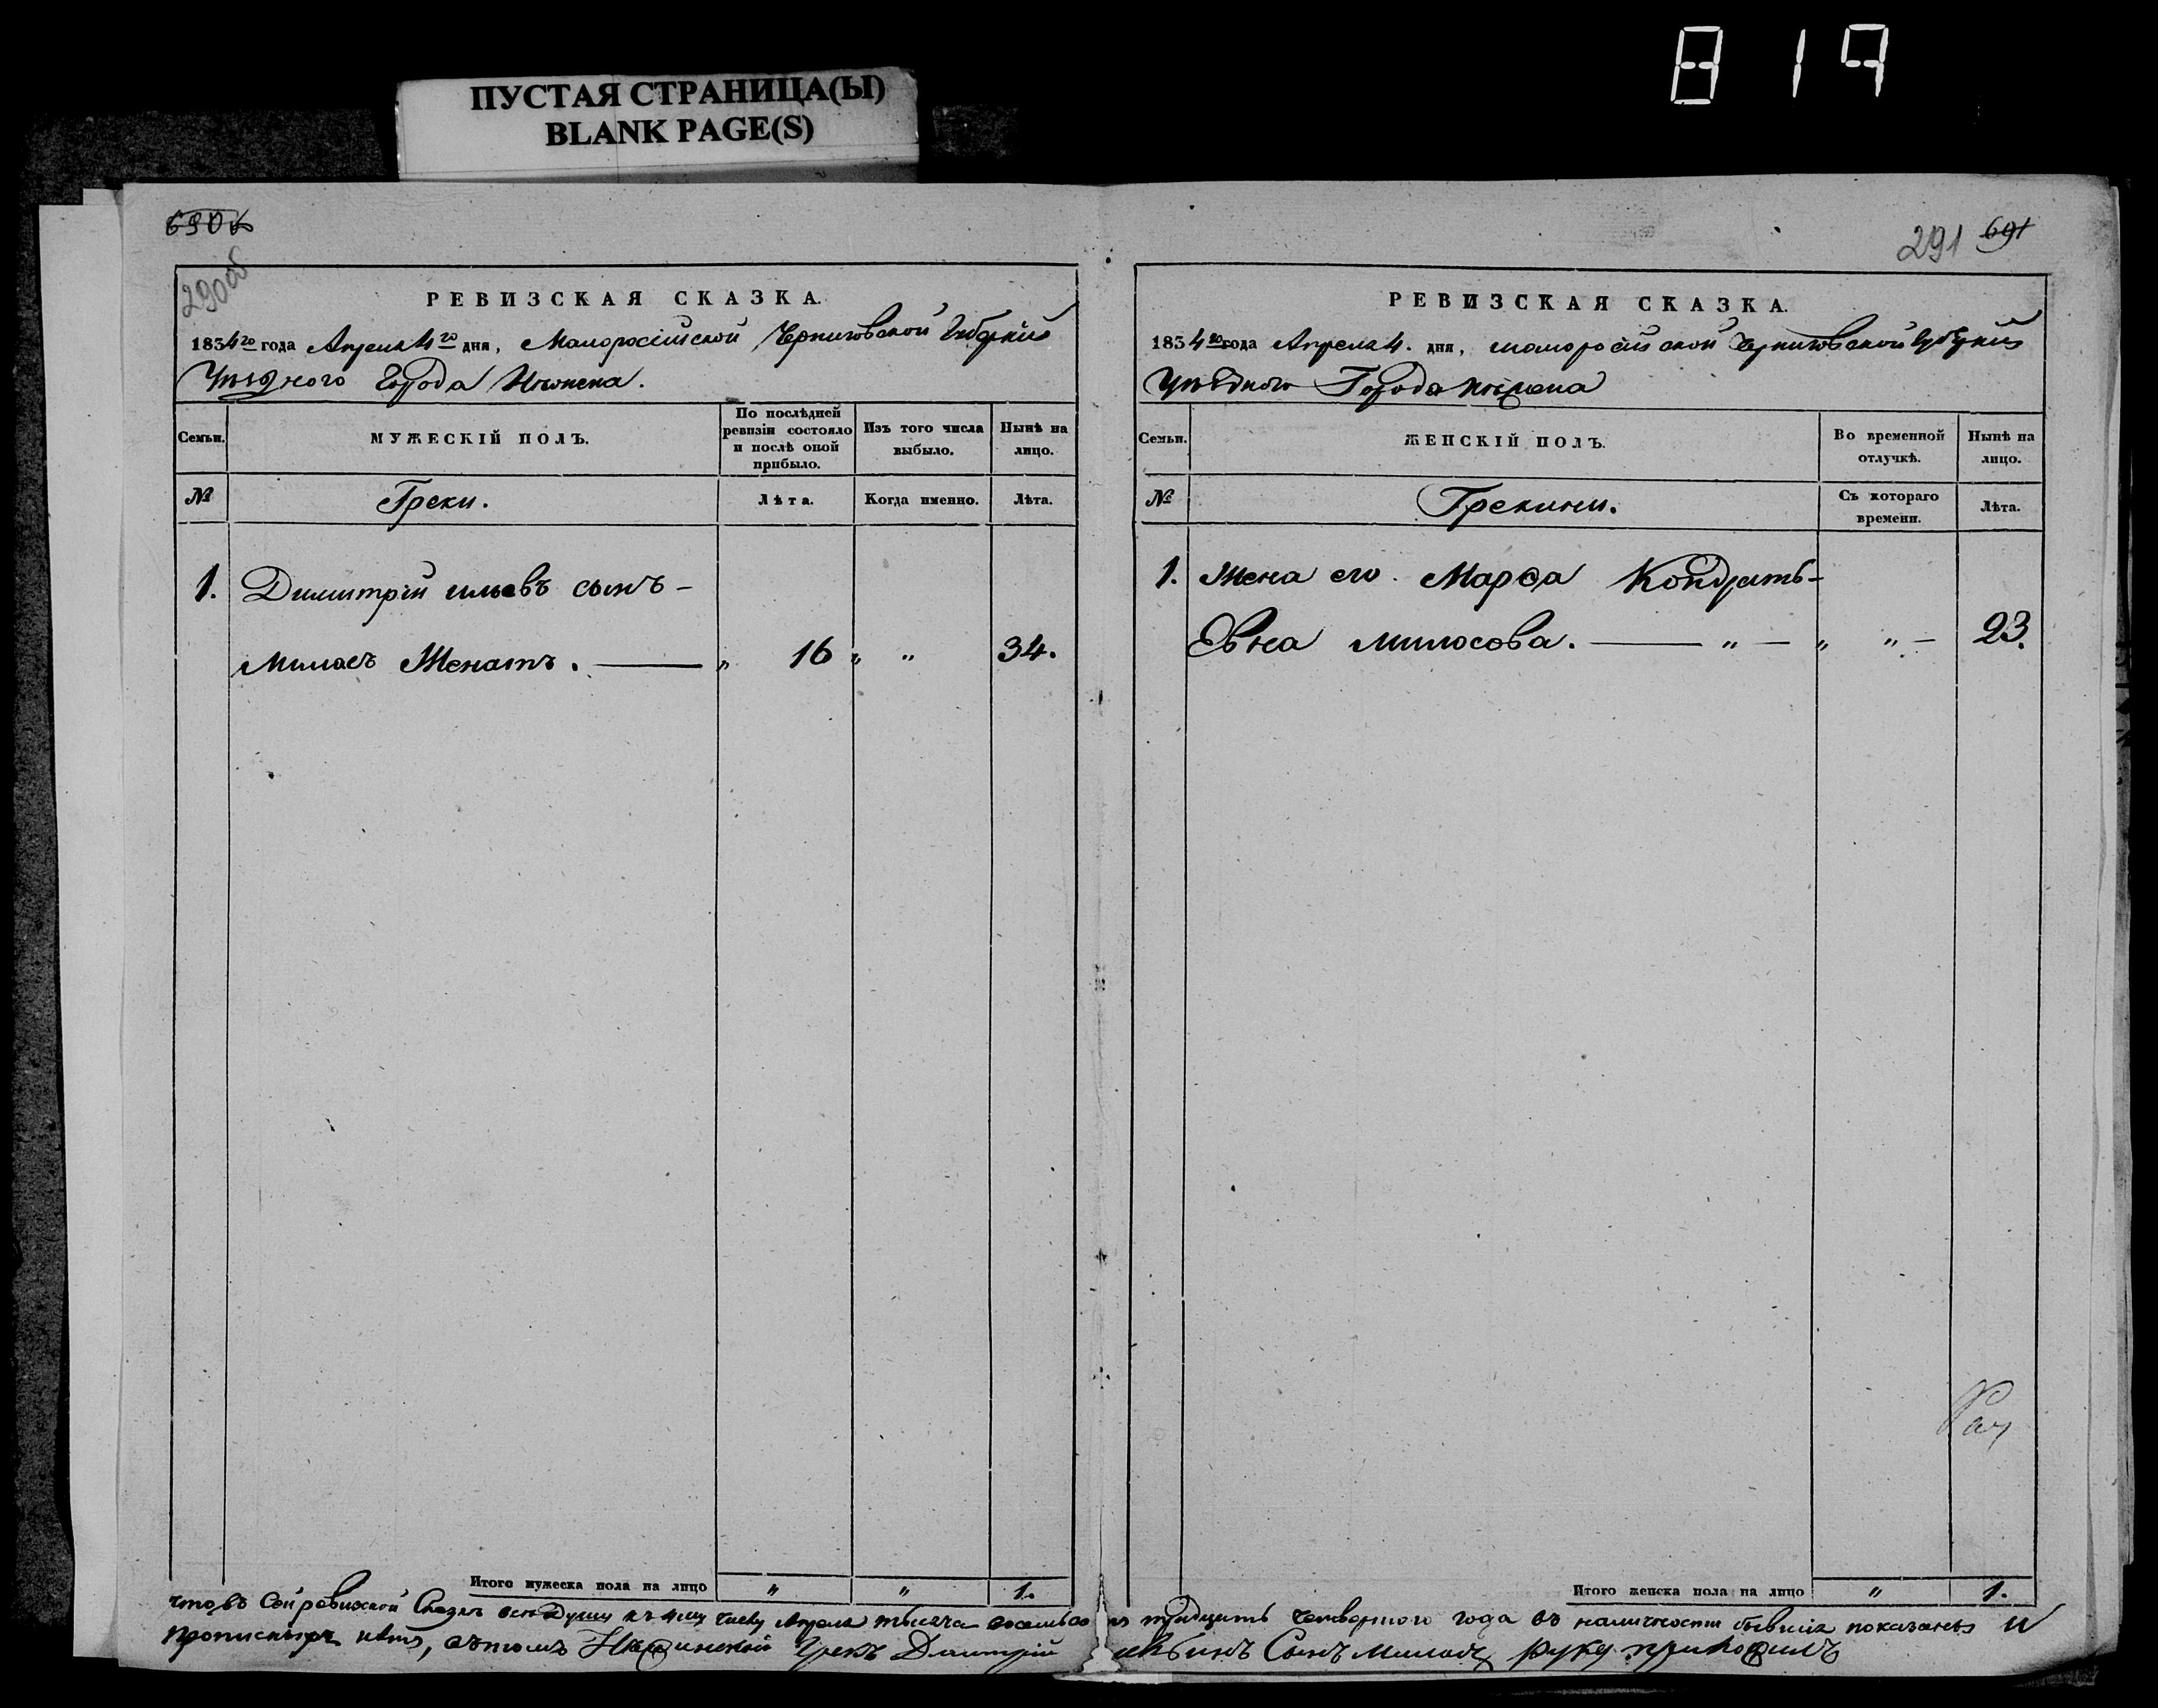 819
ПУСТАЯ СТРАНИЦА(Ы)
BLANK PAGE(S)
690об
290об
РЕВИЗСКАЯ СКАЗКА.
1834го года Апреля 4го дня, Малоросiйской Черниговской Губернiи
Уѣзднаго Города Нѣжина.
Семьи.
МУЖЕСКІЙ ПОЛЪ.
По послѣдней ревизіи состояло и послѣ оной прибыло.
Изъ того числа выбыло.
Нынѣ на лицо.
№
Греки.
Лѣта.
Когда именно.
Лѣта.
1. Димитрій ильевъ сынъ –
Милосъ Женатъ. — " 16 " " 34.
Итого мужеска пола на лицо " " 1.
291 691
РЕВИЗСКАЯ СКАЗКА.
1834го года Апреля 4. дня, малоросiйской Черниговской Губернiи
Уѣздного Города Нѣжина
Семьи.
ЖЕНСКІЙ ПОЛЪ.
Во временной отлучкѣ.
Нынѣ на лицо.
№
Грекини.
Съ котораго времени.
Лѣта.
1. Жена его Марѳа Кондрать–
Евна милосова. — " — " " — 23.
Итого женска пола на лицо " 1.
что въ Сей ревизской Сказкѣ всѣ души къ 4му числу Апреля тысяча восемьсотъ тридцать четвертого года въ наличности бывшiя показаны и
прописныхъ нѣтъ, въ томъ Нѣжинскiй Грекъ Дмитрiй Сынъ Милосъ руку приложилъ